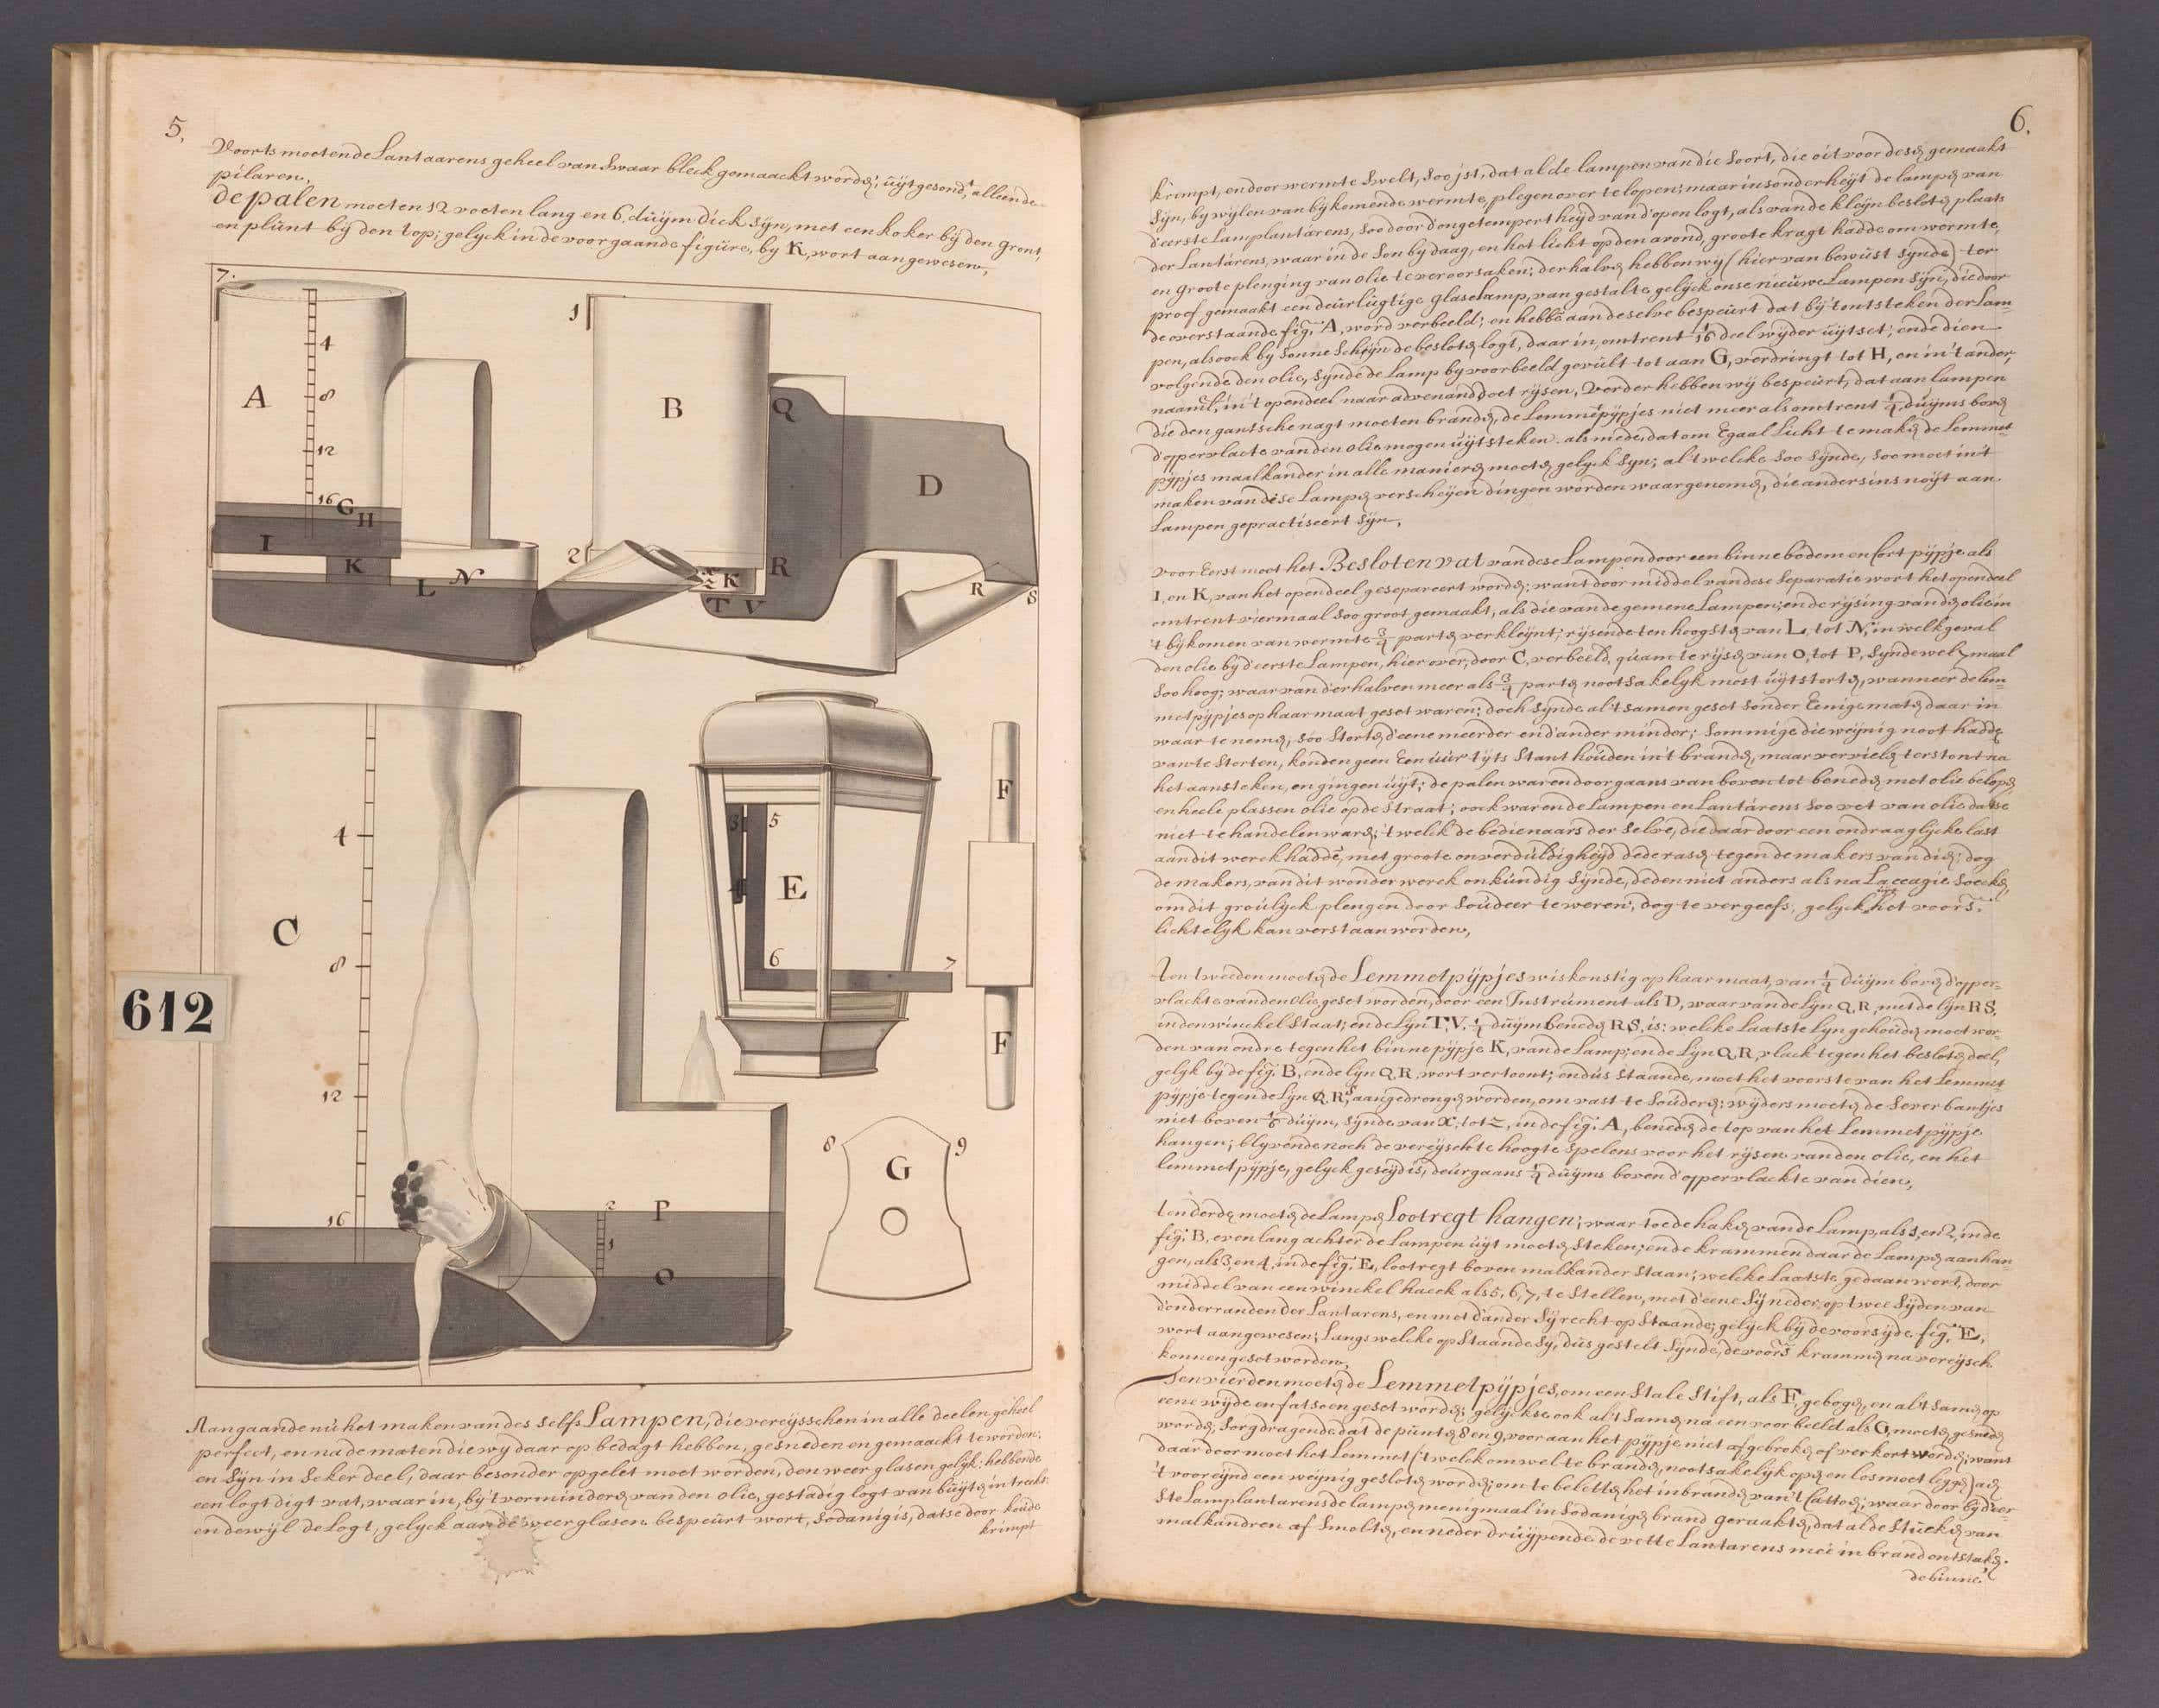 5.
Voorts moeten de Lantaarens geheel van swaar bleck gemaackt word; uÿtgesond, alleen de
pilaren,
de palen moeten 12 voeten lang en 6, duÿm dick sÿn, met een koker bÿ den gront,
en plunt bÿ den top; gelyck in de voorgaande figure, by K, wort aangewesen,
7.
4
8
12
16
A
G
H
I
K
L
N
1
2
B
Q
D
K
R
T V
R
S
C
4
8
12
16
3
4
5
6
7
E
F
F
P
2
1
O
8
9
G
612
Aangaande nu het maken van des selfs Lampen, die vereÿsschen in alle deelen geheel
perfect, en na de maten die wy daar op bedagt hebben, gesneden en gemaackt te worden;
en sÿn in seker deel, daar besonder op gelet moet worden, den weerglasen gelyk; hebbende
een logtdigt vat, waar in, bÿ 't verminderen van den olie, gestadig logt van buÿten intrekt;
en dewÿl de Logt, gelyck aan de weerglasen bespeurt wort, sodanig is, datse door koude
krimpt
6.
krimpt, en door wermte swelt, soo ist, dat al de lampen van die soort, die oit voor dese gemaakt
sÿn, by wÿlen van bÿkomende wermte, plegen over te lopen; maar insonderheÿt de lampen van
d'eerste Lamplantarens, soo door d'ongetempertheÿd van d'open logt, als van de kleÿn besloten plaats
der Lantarens, waar in de Son by daag, en het licht op den avond, groote kragt hadde om wermte,
en groote plenging van olie te veroorsaken; derhalven hebben wÿ (hier van bewust sÿnde) ter
proef gemaakt een deurlugtige glase Lamp, van gestalte gelÿck onse nieuwe Lampen sÿn, die door
de overstaande fig. A, word verbeeld; en hebben aan deselve bespeurt dat bÿ 't ontsteken der Lam-
pen, als oock by Sonne Schÿn de besloten logt, daar in, omtrent 1/16 deel wÿder uÿtset; ende dien
volgende den olie, sÿnde de Lamp by voorbeeld gevult tot aan G, verdringt tot H, en in 't ander,
naaml. in 't open deel naar advenand doet rÿsen, Verder hebben wÿ bespeurt, dat aan lampen
die den gantsche nagt moeten branden, de Lemmetpÿpjes niet meer als omtrent 1/4, duÿms boven
d'oppervlacte van den olie mogen uÿtsteken. als mede, dat om Egaal Licht te maken de Lemmet-
pÿpjes maalkander in alle manieren moeten gelyck sÿn; al 't welcke soo sÿnde, soo moet in 't
maken van dese Lampen verscheÿen dingen worden waargenomen, die andersins noÿt aan
Lampen gepractiseert sÿn,
voor Eerst moet het Besloten vat van dese Lampen door een binnebodem en cort pÿpje als
I, en K, van het open deel gesepareert worden; want door middel van dese Separatie wort het open deel
omtrent viermaal soo groot gemaakt, als die van de gemene Lampen; en de rÿsing van den olie in
't bÿkomen van wermte 3/4 parten verkleÿnt; rysende ten hoogsten van L, tot N, in welk geval
den olie by d'eerste Lampen, hier over, door C, verbeeld, quam te rÿsen van O, tot P, sÿnde wel 7 maal
soo hoog; waar van derhalven meer als 3/4 parten nootsakelyk most uÿtstorten, wanneer de lem-
metpÿpjes op haar maat geset waren; doch sÿnde al 't samen geset sonder Eenige maten daar in
waar te nemen, soo storten d'eene meerder en d'ander minder; sommige die weÿnig noot hadden
van te storten, konden geen Een uur tÿts stant houden in 't branden, maar vervielen terstont na
het aansteken, en gingen uÿt; de palen waren doorgaans van boven tot beneden met olie belopen
en heele plassen olie op de straat; oock waren de Lampen en Lantarens soo vet van olie datse
niet te handelen waren; 't welck de bedienaars der selve, die daar door een ondraaglÿcke last
aan dit werck hadden, met groote onverduldigheÿd dede rasen tegen de makers van dien; dog
de makers, van dit wonderwerck onkundig sÿnde, deden niet anders als na Leccagie soecken,
om dit groulÿck plengen door soudeer te weren; dog te vergeefs, gelÿck uÿt het voors.
lichtelyk kan verstaan worden,
Ten tweeden moeten de Lemmetpÿpjes wiskonstig op haar maat, van 1/4 duÿm boven d'opper-
vlackte van den olie geset worden, door een Instrument als D, waar van de Lÿn Q, R, met de lÿn R S,
in den winckel staat; en de Lÿn T, V, 1/4 duÿm beneden R, S, is: welcke laatste lyn gehouden moet wor-
den van ondre tegen het binne pÿpje K, van de Lamp; en de Lÿn Q R, vlack tegen het besloten deel,
gelÿk bÿ de fig. B, en de lÿn Q, R, wort vertoont; en dus staande, moet het voorste van het Lemmet
pÿpje tegen de Lÿn Q, R, S, aangedrongen worden, om vast te souderen; wÿders moeten de severbantjes
niet boven 1/6 duÿm, sÿnde van X, tot Z, in de fig: A, beneden de top van het Lemmetpÿpje
hangen; blyvende noch de vereÿschte hoogte spelens voor het rÿsen van den olie, en het
lemmetpÿpje, gelyck geseÿd is, deurgaans 1/4 duÿms boven d'oppervlackte van dien,
ten derden moeten de Lampen Lootregt hangen; waar toe de haken van de Lamp, als 1, en 2, in de
fig: B, even lang achter de Lampen uÿt moeten steken; en de krammen daar de Lampen aan han-
gen, als 3, en 4, in de fig. E, lootregt boven malkander staan; welcke laatste gedaan wort, door
middel van een winckel haeck als 5, 6, 7, te stellen, met d'eene sÿ neder, op twee sÿden van
d'onderranden der Lantarens, en met d'ander sÿ recht op staande; gelyck bÿ de voorsÿde fig. E,
wort aangewesen; Langs welcke opstaande sÿ, dus gestelt sÿnde, de voors krammen na vereÿsch
konnen geset worden,
Ten vierden moeten de Lemmetpÿpjes, om een stale stift, als F, gebogen, en al 't samen op
eene wÿde en fatsoen geset worden; gelyck se ook al 't samen na een voorbeeld als G, moeten gesneden
worden, sorgdragende dat de punten 8 en 9, voor aan het pÿpje niet afgebroken of verkort worden; want
daar door moet het Lemmet ('t welck om wel te branden, nootsakelÿk open en los moet leggen) aen
't vooreÿnd een weÿnig gesloten worden; om te beletten het inbranden van 't Cattoen; waar door bÿ d'eer-
ste Lamplantarens de lampen menigmaal in sodanigen brand geraakten, dat al de stucken van
malkandren af smolten, en neder druÿpende de vette Lantarens mee in brand ontstaken.
de binne